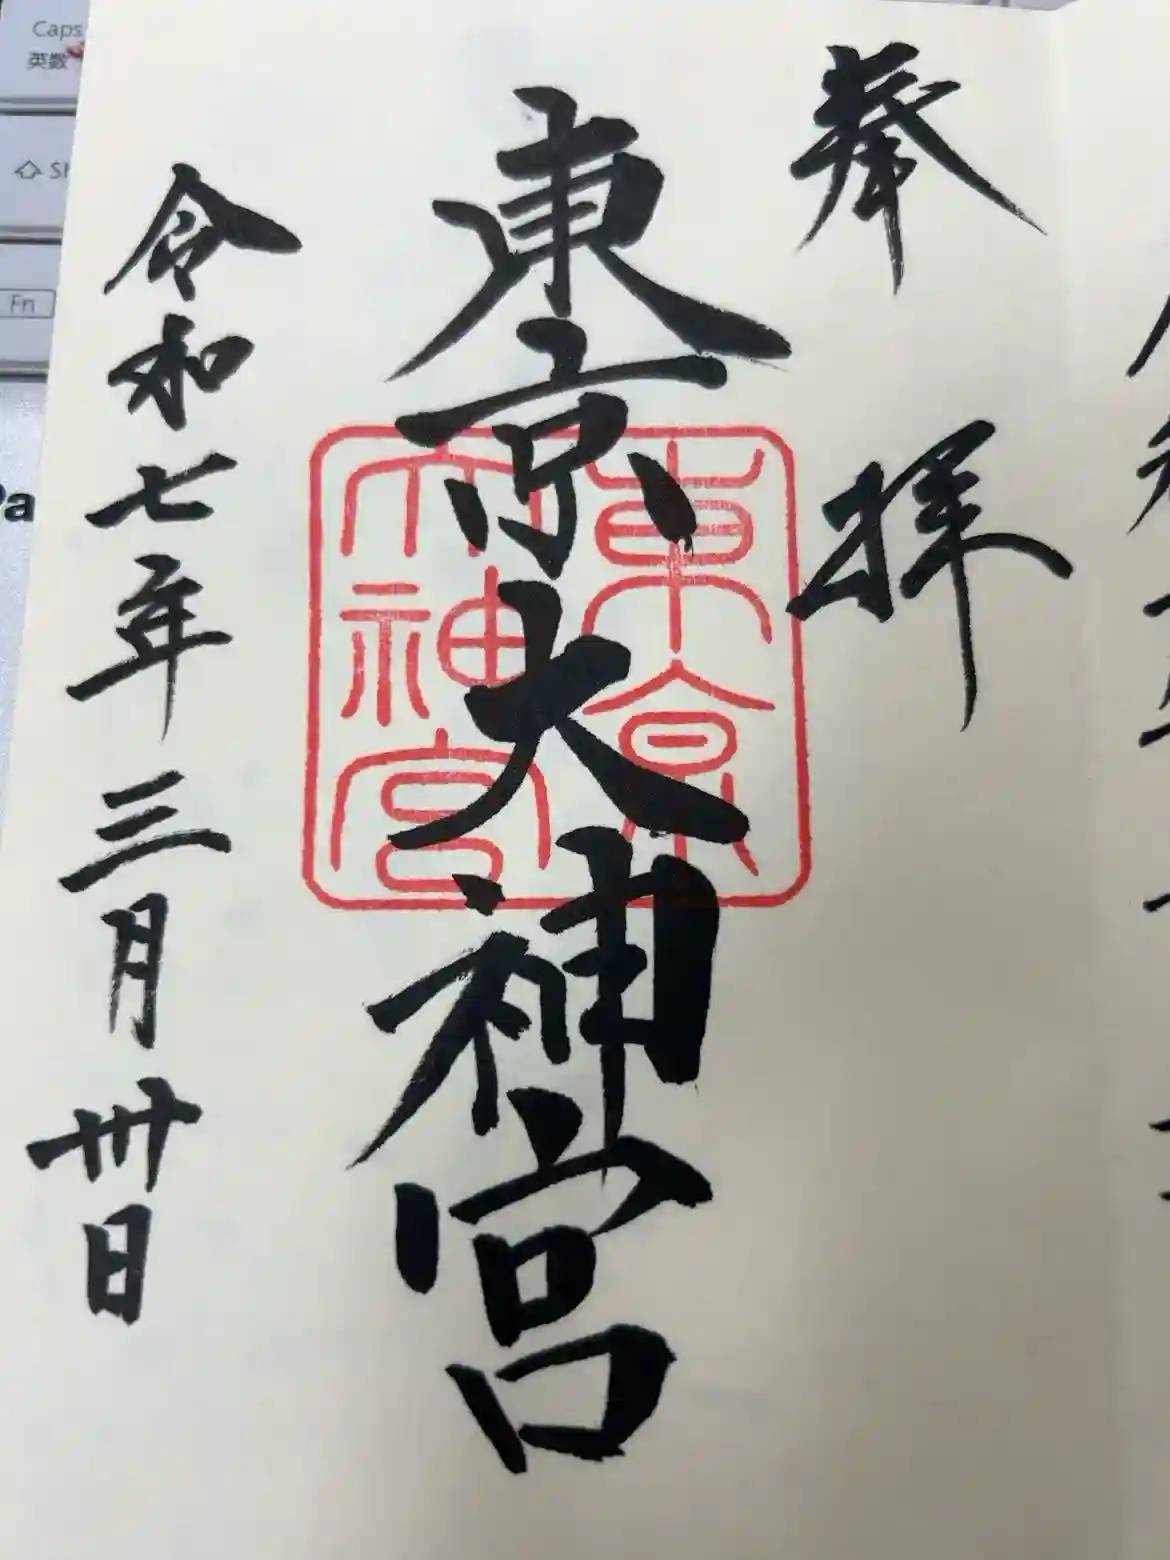 奉拝
東京大神宮
東京
大神宮
令和七年三月卅日
Caps
英数
Fn